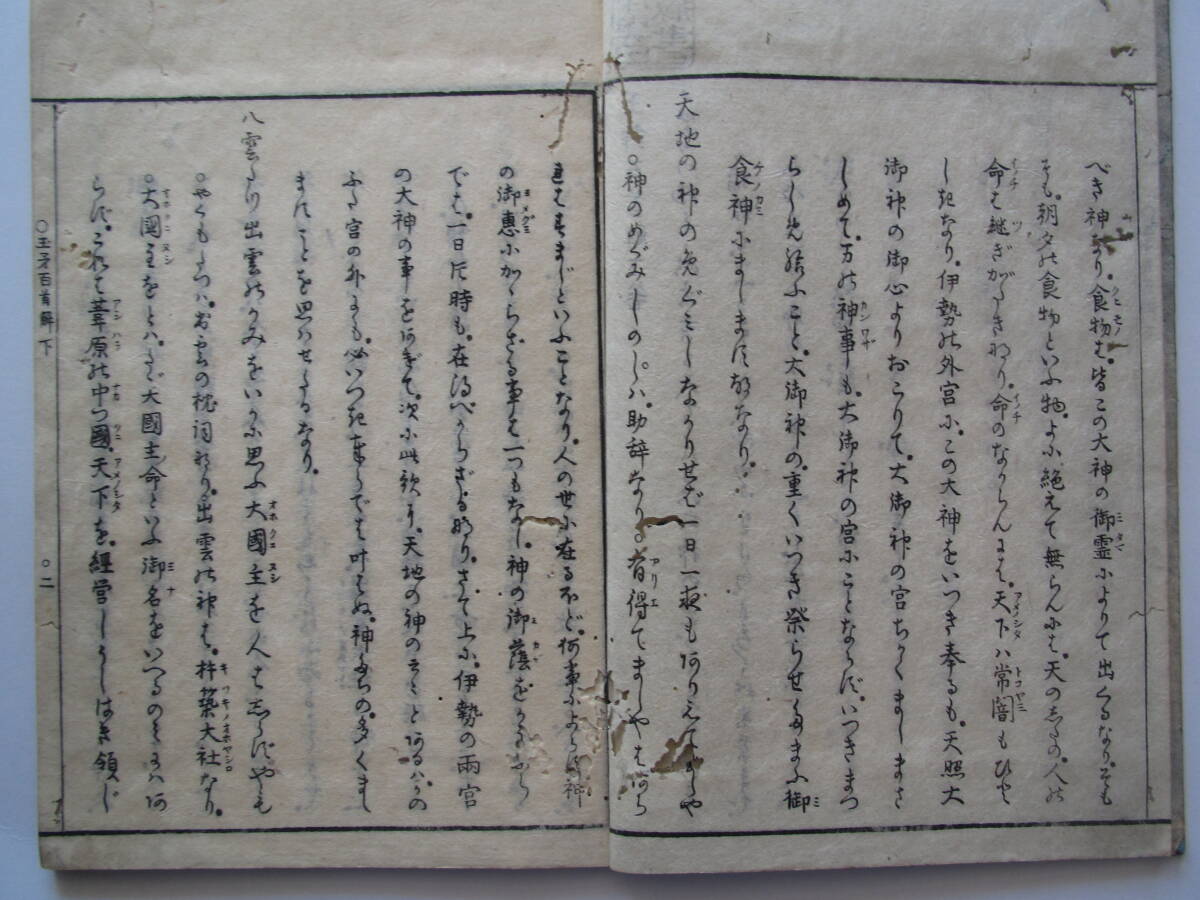 べき神なり。食物は。皆この大神の御霊によりて出くるなり。そも
そも。朝夕の食物といふ物。よに絶えて無らんには。天の下の。人の
命は継ぎがたきわざなり。命のなからんには。天下ハ常闇もひと
しきなり。伊勢の外宮に。この大神をいつき奉るも。天照大
御神の御心よりおこりて。大御神の宮ちかくましまさ
しめて。万の神事も。大御神の宮にことならず。いつきまつ
らしめ給ふこと。大御神の。重くいつき祭らせたまふ御
食神にましますゆゑなり。
天地の神のめぐみしなかりせば一日一夜もありえてましや
○神のめぐみしのしハ。助辞なり。有得てましやはあら
れはすまじといふことなり。人の世に在るほど。何事によらず神
の御恵にかゝらざる事は一つもなし。神の御蔭をかうぶら
では。一日片時も。在得べからざるなり。さて上に。伊勢の両宮
の大神の事をあげて。次に此歌に。天地の神のうんとあるハ。かの
ふた宮の外にも。必いつき奉らでは叶はぬ。神たちの。多くまし
ますことを思ハせたるなり。
八雲たつ出雲のかみをいかに思ふ大國主を人はしらずやも
○やくもたつハ。出雲の枕詞なり。出雲の神は。杵築大社なり。
○大國主をとハ。たゞ大國主命といふ御名をいへるのみにハあ
らず。これは葦原の中つ國。天下を。経営しうしはき領じ
○玉矛百首解 下
○二